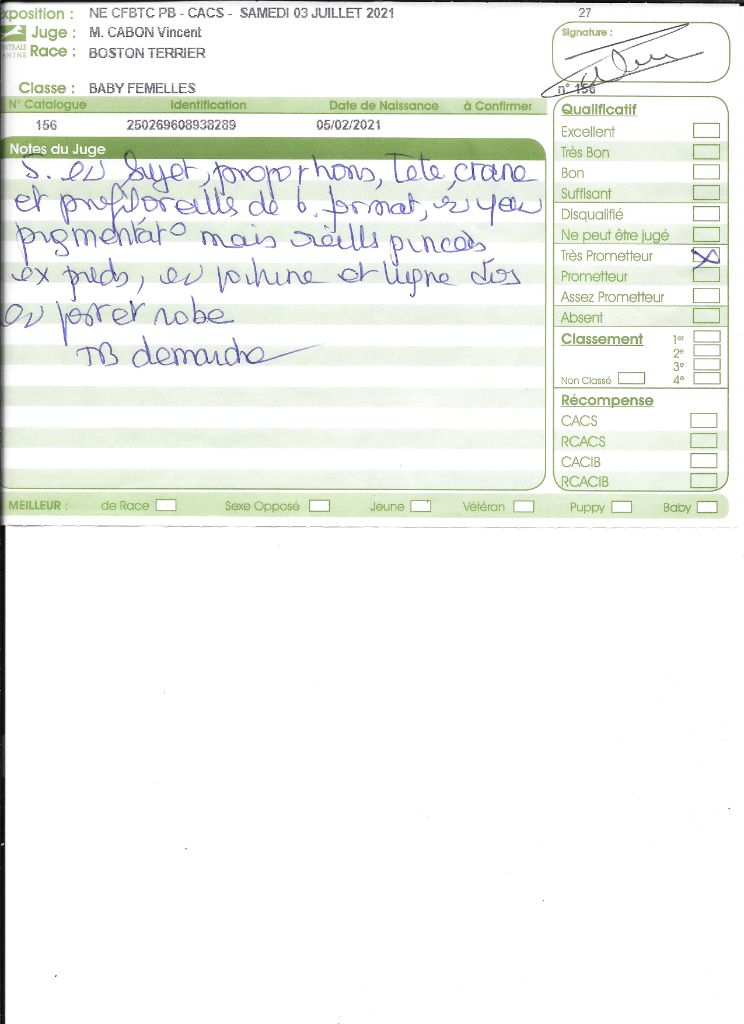 xposition : NE CFBTC PB - CACS - SAMEDI 03 JUILLET 2021 27
Juge : M. CABON Vincent
Signature :
Race : BOSTON TERRIER
Classe : BABY FEMELLES
n° 156
N° Catalogue Identification Date de Naissance à Confirmer
156 250269608938289 05/02/2021
Notes du Juge
sujet, proportions, Tete, crane
et profil oreilles de b. format,
pigmentat° mais oreilles pincées
ex pieds, poitrine et ligne dos
port et robe
TB demarche
Qualificatif
Excellent
Très Bon
Bon
Suffisant
Disqualifié
Ne peut être jugé
Très Prometteur
Prometteur
Assez Prometteur
Absent
Classement 1er
2e
3e
Non Classé 4e
Récompense
CACS
RCACS
CACIB
RCACIB
MEILLEUR : de Race Sexe Opposé Jeune Vétéran Puppy Baby